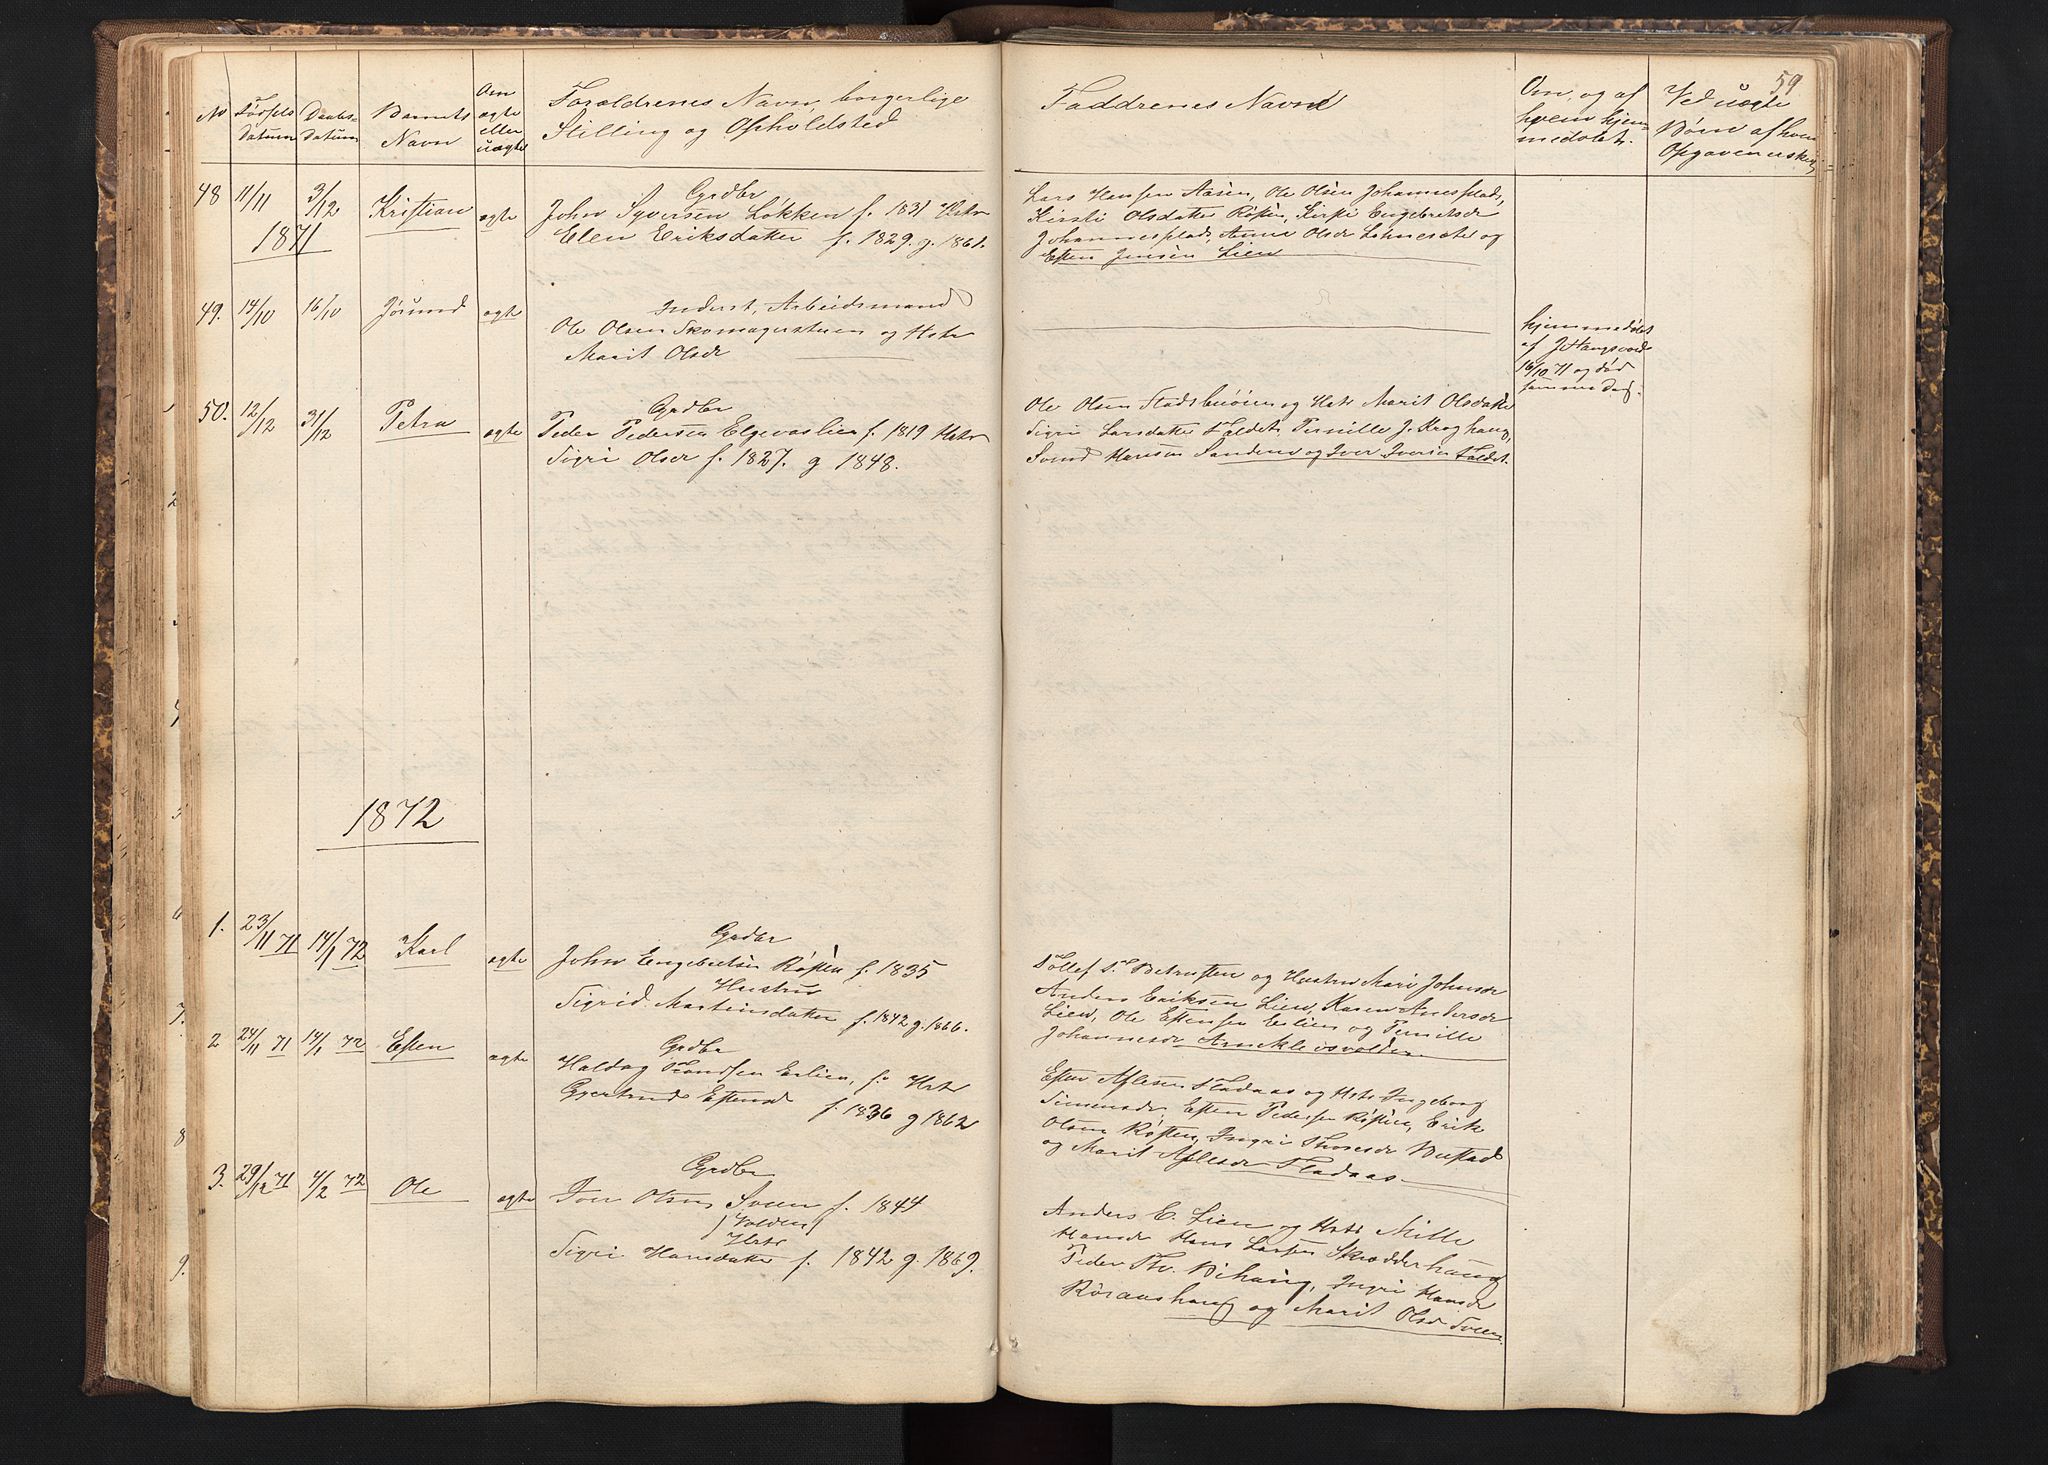 59.
No
Fødsels
Datum
Daabs-
Datum
Barnets
Navn
Om
ægte
eller
uægte
Forældrenes Navn, borgerlige
Stilling og Opholdsted
Faddrenes Navne
Om, og af
hvem hjem-
medøbt.
Ved uægte
Børn af hvem
Opgaven er skeet
48 11/11 3/12 Kristian ægte
1871
Grdbr
John Syversen Løkken f. 1831 Hstr
Elen Eriksdatter f. 1829. g. 1861.
Lars Hansen Aasen, Ole Olsen Johannesplads,
Kirsti Olsdatter Røsten, Kirsti Engebretsdr
Johannesplads, Anne Olsdr og
Esten Jensen Lien
49. 14/10 16/10 Jørund ægte
Inderst, Arbeidsmand
Ole Olsen Skomagerstuen og Hstr
Marit Olsdr
hjemmedøbt
af J. Haugsvold
16/10 71 og død
samme Dag.
50. 12/12 31/12 Petra ægte
Grdbr
Peder Pedersen Elgevaslien f. 1819 Hstr
Sigri Olsdr f. 1827. g 1848.
Ole Olsen Stadsbuøien og Hstr Marit Olsdatter
Sigri Larsdatter Faldet, Pernille J. Kroghaug,
Svend Hansen Sanden og Iver Iversen Faldet.
1872
1. 23/11 71 14/1 72 Karl ægte
Grdbr
John Engebretsen Røsten f. 1835
Hustru
Sigrid Martinsdatter f. 1842 g. 1866.
Tollef T. Betrusten og Hustru Mari Johnsdr
Anders Eriksen Lien, Karen Andersdr
Lien, Ole Estensen Erlien og Pernille
Johannesdr Arnekleivvolden
2 24/11 71 14/1 72 Esten ægte
Grdbr
Haldog Trondsen Erlien, f. Hstr
Gjertrud Estensd f. 1836 g 1862
Esten Aslesen Fladaas og Hstr Ingeborg
Simensdr, Esten Pedersen Røsten, Erik
Olsen Røsten, Ingri Thoresdr Bustad
og Marit Aslesdr Fladaas.
3. 29/12 71 4/2 72 Ole ægte
Grdbr
Jon Olsen Sveen f. 1844
(Volden)
Hstr
Sigri Hansdatter f. 1842 g. 1869.
Anders E. Lien og Hstr Mille
Hansdr Hans Larsen Skrødderhaug
Peder Thr. Bihaug, Ingri Hansdr
Røraashaug og Marit Olsd Sveen.